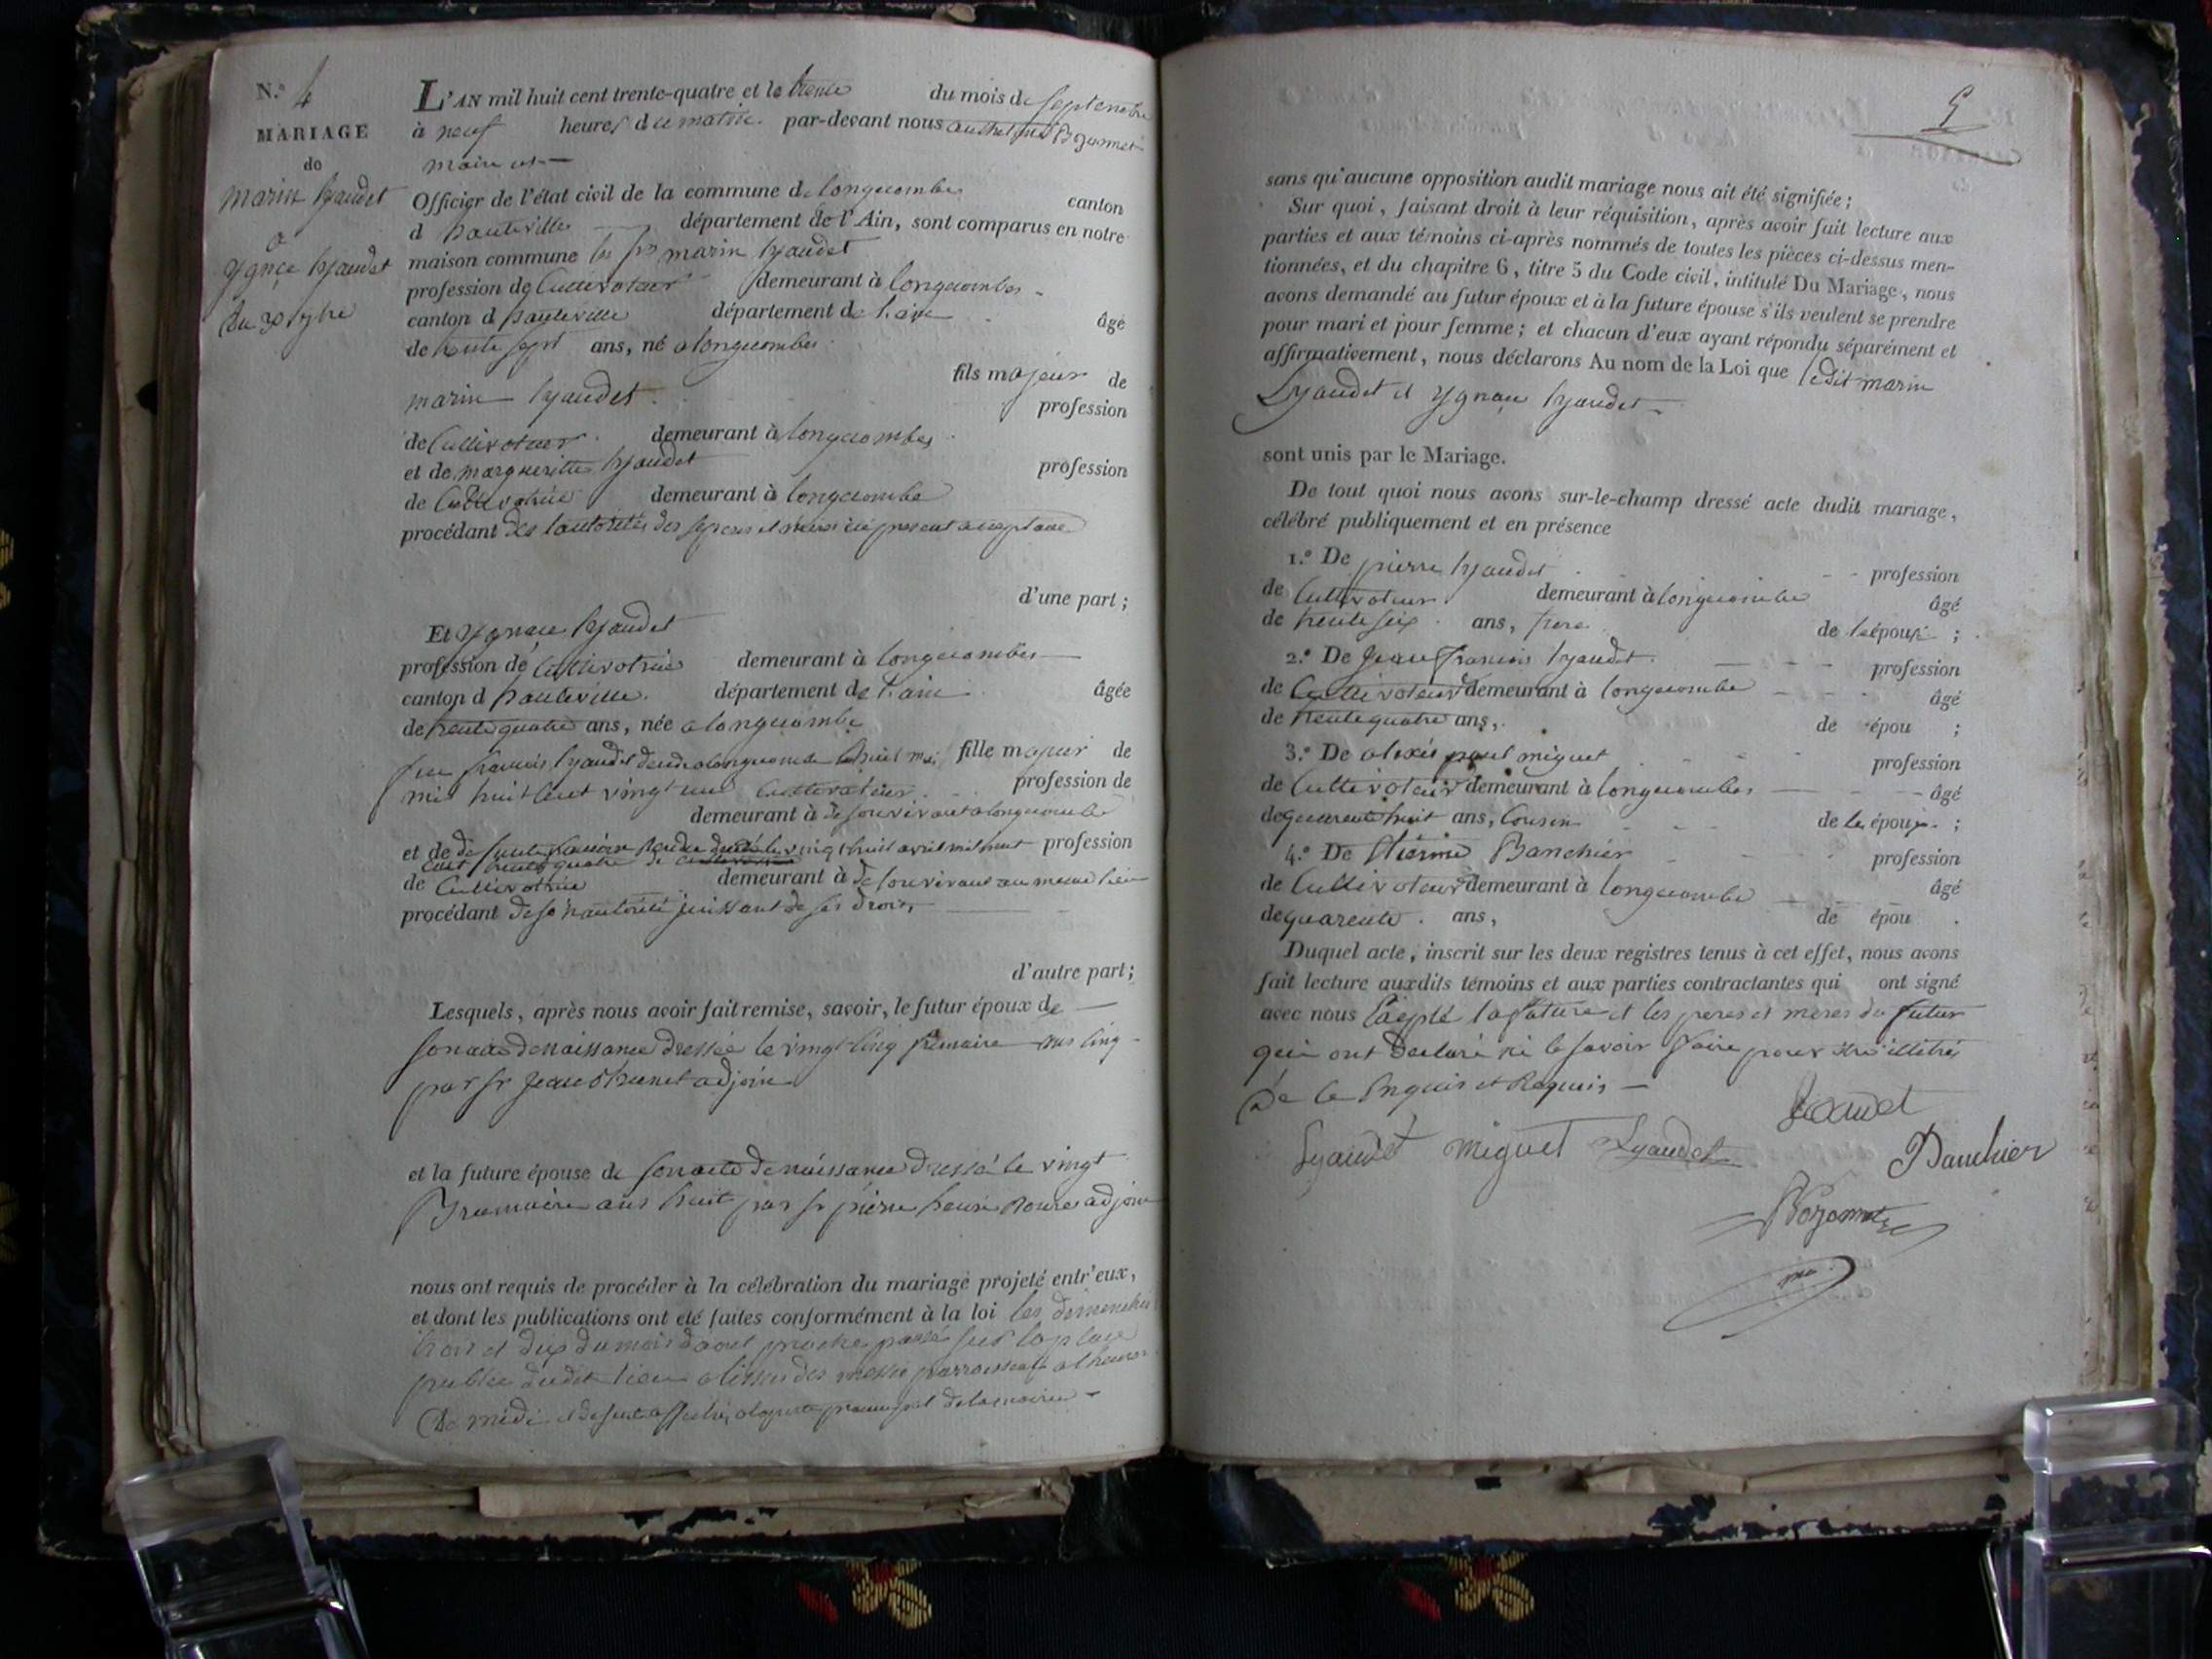 N.º 4
MARIAGE
de
marin Lyaudet
&
Ygnace Lyaudet
du 30 7bre
L'AN mil huit cent trente-quatre et le trente du mois de septembre
à neuf heures du matin par-devant nous Bozonnet
maire et
Officier de l'état civil de la commune de longecombe canton
d hauteville département de l'Ain, sont comparus en notre
maison commune les sr marin Lyaudet
profession de Cultivateur demeurant à longecombe
canton d hauteville département de l'ain âgé
de trente sept ans, né a longecombe
fils majeur de
marin Lyaudet profession
de Cultivateur demeurant à longecombe
et de margueritte Lyaudet profession
de Cultivatrice demeurant à longecombe
procédant de l'autorité des ses pere et mere ici present acceptant
d'une part ;
Et Ygnace Lyaudet
profession de Cultivatrice demeurant à longecombe
canton d hauteville département de l'ain âgée
de trente quatre ans, née a longecombe
feu francois Lyaudet longecombe le huit mai fille majeur de
mil huit cent vingt un Cultivateur profession de
demeurant à de son vivant a longecombe
et de vingt huit avril mil huit profession
cent trente quatre
de Cultivatrice demeurant à de son vivant au meme lieu
procédant de sa autorité juissant de ses droits
d'autre part ;
Lesquels, après nous avoir fait remise, savoir, le futur époux de
son acte de naissance dressée le vingt cinq frimaire ans cinq
par sr Jean adjoin
et la future épouse de son acte de naissance dressé le vingt
Brumaire ans huit par sr pierre adjoin
nous ont requis de procéder à la célébration du mariage projeté entr'eux,
et dont les publications ont été faites conformément à la loi les dimanches
trois et dix du mois daout proche passé sur la place
publice dudit lieu a lissue des messe parroissealle a lheure
de midi et de suite affiché a la porte principal de la mairie
5
sans qu'aucune opposition audit mariage nous ait été signifiée ;
Sur quoi, faisant droit à leur réquisition, après avoir fait lecture aux
parties et aux témoins ci-après nommés de toutes les pièces ci-dessus men-
tionnées, et du chapitre 6, titre 5 du Code civil, intitulé Du Mariage, nous
avons demandé au futur époux et à la future épouse s'ils veulent se prendre
pour mari et pour femme ; et chacun d'eux ayant répondu séparément et
affirmativement, nous déclarons Au nom de la Loi que ledit marin
Lyaudet et Ygnace Lyaudet
sont unis par le Mariage.
De tout quoi nous avons sur-le-champ dressé acte dudit mariage,
célébré publiquement et en présence
1.º De pierre Lyaudet profession
de Cultivateur demeurant à longecombe âgé
de trente six ans, frere de l'épouse ;
2.º De Jean francois Lyaudet profession
de Cultivateur demeurant à longecombe âgé
de trente quatre ans, de épou ;
3.º De alexis paul miguet profession
de Cultivateur demeurant à longecombe âgé
de quarente huit ans, Cousin de les époux ;
4.º De Banchier profession
de Cultivateur demeurant à longecombe âgé
de quarente ans, de épou .
Duquel acte, inscrit sur les deux registres tenus à cet effet, nous avons
fait lecture auxdits témoins et aux parties contractantes qui ont signé
avec nous Exepté la future et les peres et meres du futur
qui ont declaré ne le savoir faire pour être illitrés
de ce Enquis et Requis
Lyaudet
Lyaudet miguet Lyaudet
Banchier
Bozonnet
mre